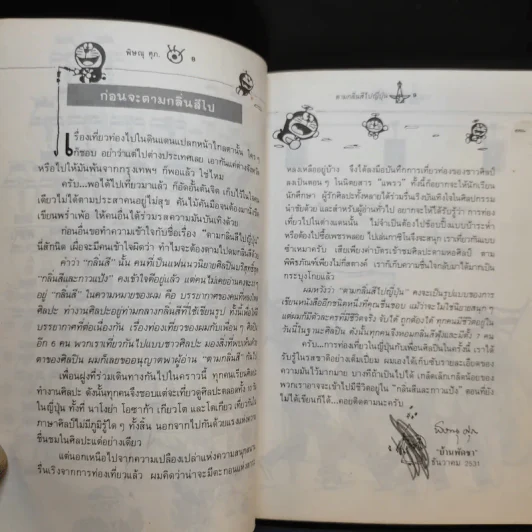 พิษณุ ศุภ. ๘
ก่อนจะตามกลิ่นสีไป
เรื่องเที่ยวท่องไปในดินแดนแปลกหน้าไกลตานั้น ใคร ๆ
ก็ชอบ อย่าว่าแต่ไปต่างประเทศเลย เอากันแค่ต่างจังหวัด
หรือไปให้มันพ้นจากกรุงเทพฯ ก็พอแล้ว ใช่ไหม
ครับ...พอได้ไปเที่ยวมาแล้ว ก็อัดอั้นตันจิต เก็บไว้ในใจคน
เดียวไม่ได้ตามประสาคนอยู่ไม่สุข คันไม้คันมือจนต้องมานั่ง
เขียนพร่ำเพ้อ ให้คนอื่นได้ร่วมรสความมันบันเทิงด้วย
ก่อนอื่นขอทำความเข้าใจกับชื่อเรื่อง "ตามกลิ่นสีไปญี่ปุ่น"
นี้สักนิด เผื่อจะมีคนเข้าใจผิดว่า ทำไมจะต้องตามไปดมกลิ่นสี
คำว่า "กลิ่นสี" นั้น คนที่เป็นแฟนนวนิยายศิลปิน
"กลิ่นสีและกาวแป้ง" คงเข้าใจดีอยู่แล้ว แต่คนไม่เคยอ่าน
อยู่ "กลิ่นสี" ในความหมายของผม คือ บรรยากาศของคนที่
ศิลปะ ทำงานศิลปะอยู่ท่ามกลางกลิ่นสีที่ใช้เขียนรูป ทั้งนี้เพื่อให้
บรรยากาศที่ต่อเนื่องกัน เรื่องท่องเที่ยวของผมกับเพื่อน ๆ ศิลปิน
อีก 6 คน พวกเราเที่ยวกันไปแบบชาวศิลปะ มองสิ่งที่พบเห็นด้วย
ตาของศิลปิน ผมก็เลยขออนุญาตพาผู้อ่าน "ตามกลิ่นสี" กันไป
เพื่อนฝูงที่ร่วมเดินทางกันไปในคราวนี้ ทุกคนเรียน
ทำงานศิลปะ ดังนั้นทุกคนจึงชอบแต่จะเที่ยวดูศิลปะตลอดทั้ง
ในญี่ปุ่น ทั้งที่ นาโงย่า โอซาก้า เกียวโต และโตเกียว เที่ยวกันใน
ภาษาศิลปินไม่มีภูมิรู้ใด ๆ ทั้งสิ้น นอกจากไปกันด้วยแรงแห่งความ
ชื่นชมในศิลปะแต่อย่างเดียว
แต่นอกเหนือไปจากความเปลืองเปล่าแห่งความสนุกสนาน
รื่นเริงจากการท่องเที่ยวแล้ว ผมคิดว่าน่าจะมีตะกอนแห่ง
ตามกลิ่นสีไปญี่ปุ่น ๙
หลงเหลืออยู่บ้าง จึงได้ลงมือบันทึกการเดี่ยวท่องของชาวศิลป์
ลงเป็นตอน ๆ ในนิตยสาร "แพรว" ทั้งนี้ก็อยากจะให้นักเรียน
นักศึกษา ผู้รักศิลปะทั้งหลายได้ร่วมรื่นเริงบันเทิงใจในศิลปกรรม
น่าขันด้วย และสำหรับผู้อ่านทั่วไป อยากจะให้ได้รับรู้ว่า การท่อง
เที่ยวไปในต่างแดนนั้น ไม่จำเป็นต้องไปช้อปปิ้งแบบบ้าระห่ำ
หรือต้องไปซื้อเพชรพลอย ไปเล่นกาซิโนจึงจะสนุก เราเที่ยวกันแบบ
ขำเหมาครับ เสียเพียงค่าบัตรเข้าชมศิลปะตามหอศิลป์ ตาม
พิพิธภัณฑ์เพียงไม่กี่สตางค์ เราก็เก็บความชื่นใจกลับมาได้มากเป็น
กระบุงโกยแล้ว
ผมหวังว่า "ตามกลิ่นสีไปญี่ปุ่น" คงจะเป็นรูปแบบของการ
เขียนหนังสืออีกชนิดหนึ่งที่คุณชื่นชอบ แม้ว่าจะไม่ใช่นิยายสนุก ๆ
แต่ผมก็มีตัวละครที่มีชีวิตจริง จับได้ ถูกต้องได้ ทุกคนมีชีวิตอยู่ใน
วันนี้ในฐานะศิลปิน ดังนั้นทุกคนจึงหอมกลิ่นสีฟุ้งและมีถึง 7 คน
ครับ...การท่องเที่ยวในญี่ปุ่นกับเพื่อนศิลปินในครั้งนี้ เราได้
รับรู้ในรสชาติอย่างเต็มเปี่ยม ผมเองได้เก็บซับรายละเอียดของ
ความมันไว้มากมาย บางทีถ้าเป็นไปได้ เกล็ดเล็กเกล็ดน้อยของ
พวกเราอาจจะเข้าไปมีชีวิตอยู่ใน "กลิ่นสีและกาวแป้ง" ตอนที่ยัง
ไม่ได้เขียนก็ได้...คอยติดตามนะครับ
"บ้านพัดชา"
ธันวาคม 2531